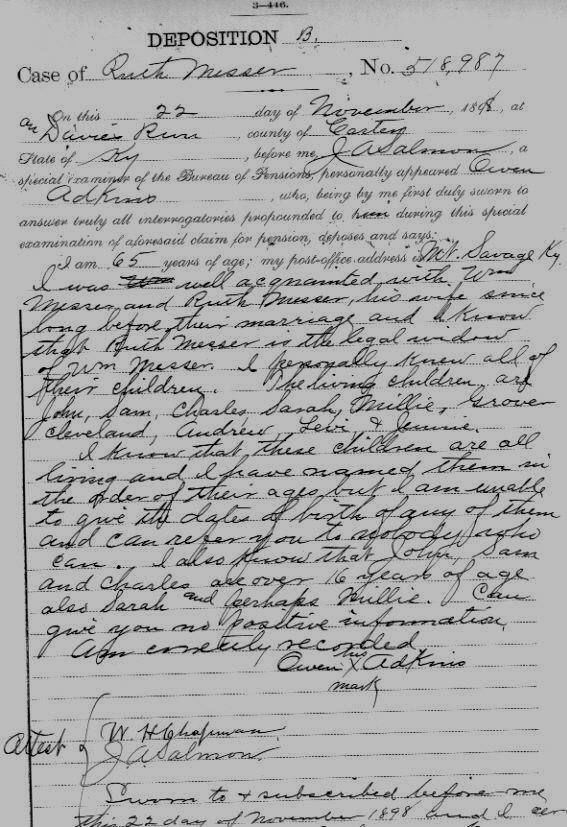 3—446.
DEPOSITION B.
Case of Ruth Messer, No. 518,987
On this 22 day of November, 1898, at
an Davies Run, county of Carter
State of Ky, before me, J A Salmon, a
special examiner of the Bureau of Pensions, personally appeared Owen
Adkins, who, being by me first duly sworn to
answer truly all interrogatories propounded to him during this special
examination of aforesaid claim for pension, deposes and says:
I am 65 years of age; my post-office address is Mt. Savage Ky.
I was well acquainted with Wm
Messer and Ruth Messer, his wife since
long before their marriage and I know
that Ruth Messer is the legal widow
of Wm Messer. I personally knew all of
their children. The living children are
John, Sam, Charles Sarah, Millie, Grover
Cleveland, Andrew, Levi & Jennie.
I know that these children are all
living and I have named them in
the order of their ages, but I am unable
to give the dates of birth of any of them
and can refer you to nobody who
can. I also know that John, Sam
and Charles are over 16 years of age
also Sarah and perhaps Millie. Can
give you no positive information.
Am correctly recorded.
Owen his X Adkins
mark
Attest { W. H Chapman.
J A Salmon.
Sworn to & subscribed before me
this 22 day of November 1898 and I cer